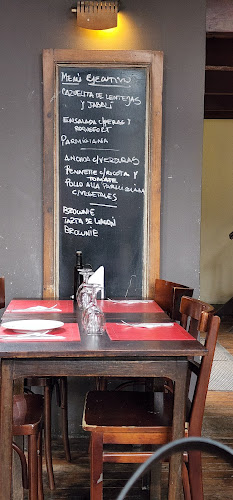 MENÚ EJECUTIVO
CAZUELITA DE LENTEJAS
Y JABALÍ
ENSALADA C/PERAS Y
ROQUEFORT
PARMIGIANA
ANCHOA C/VERDURAS
PENNETTE C/RICOTA Y
TOMATE
POLLO ALLA PARMIGIANA
C/VEGETALES
BROWNIE
TARTA DE LIMÓN
BROWNIE